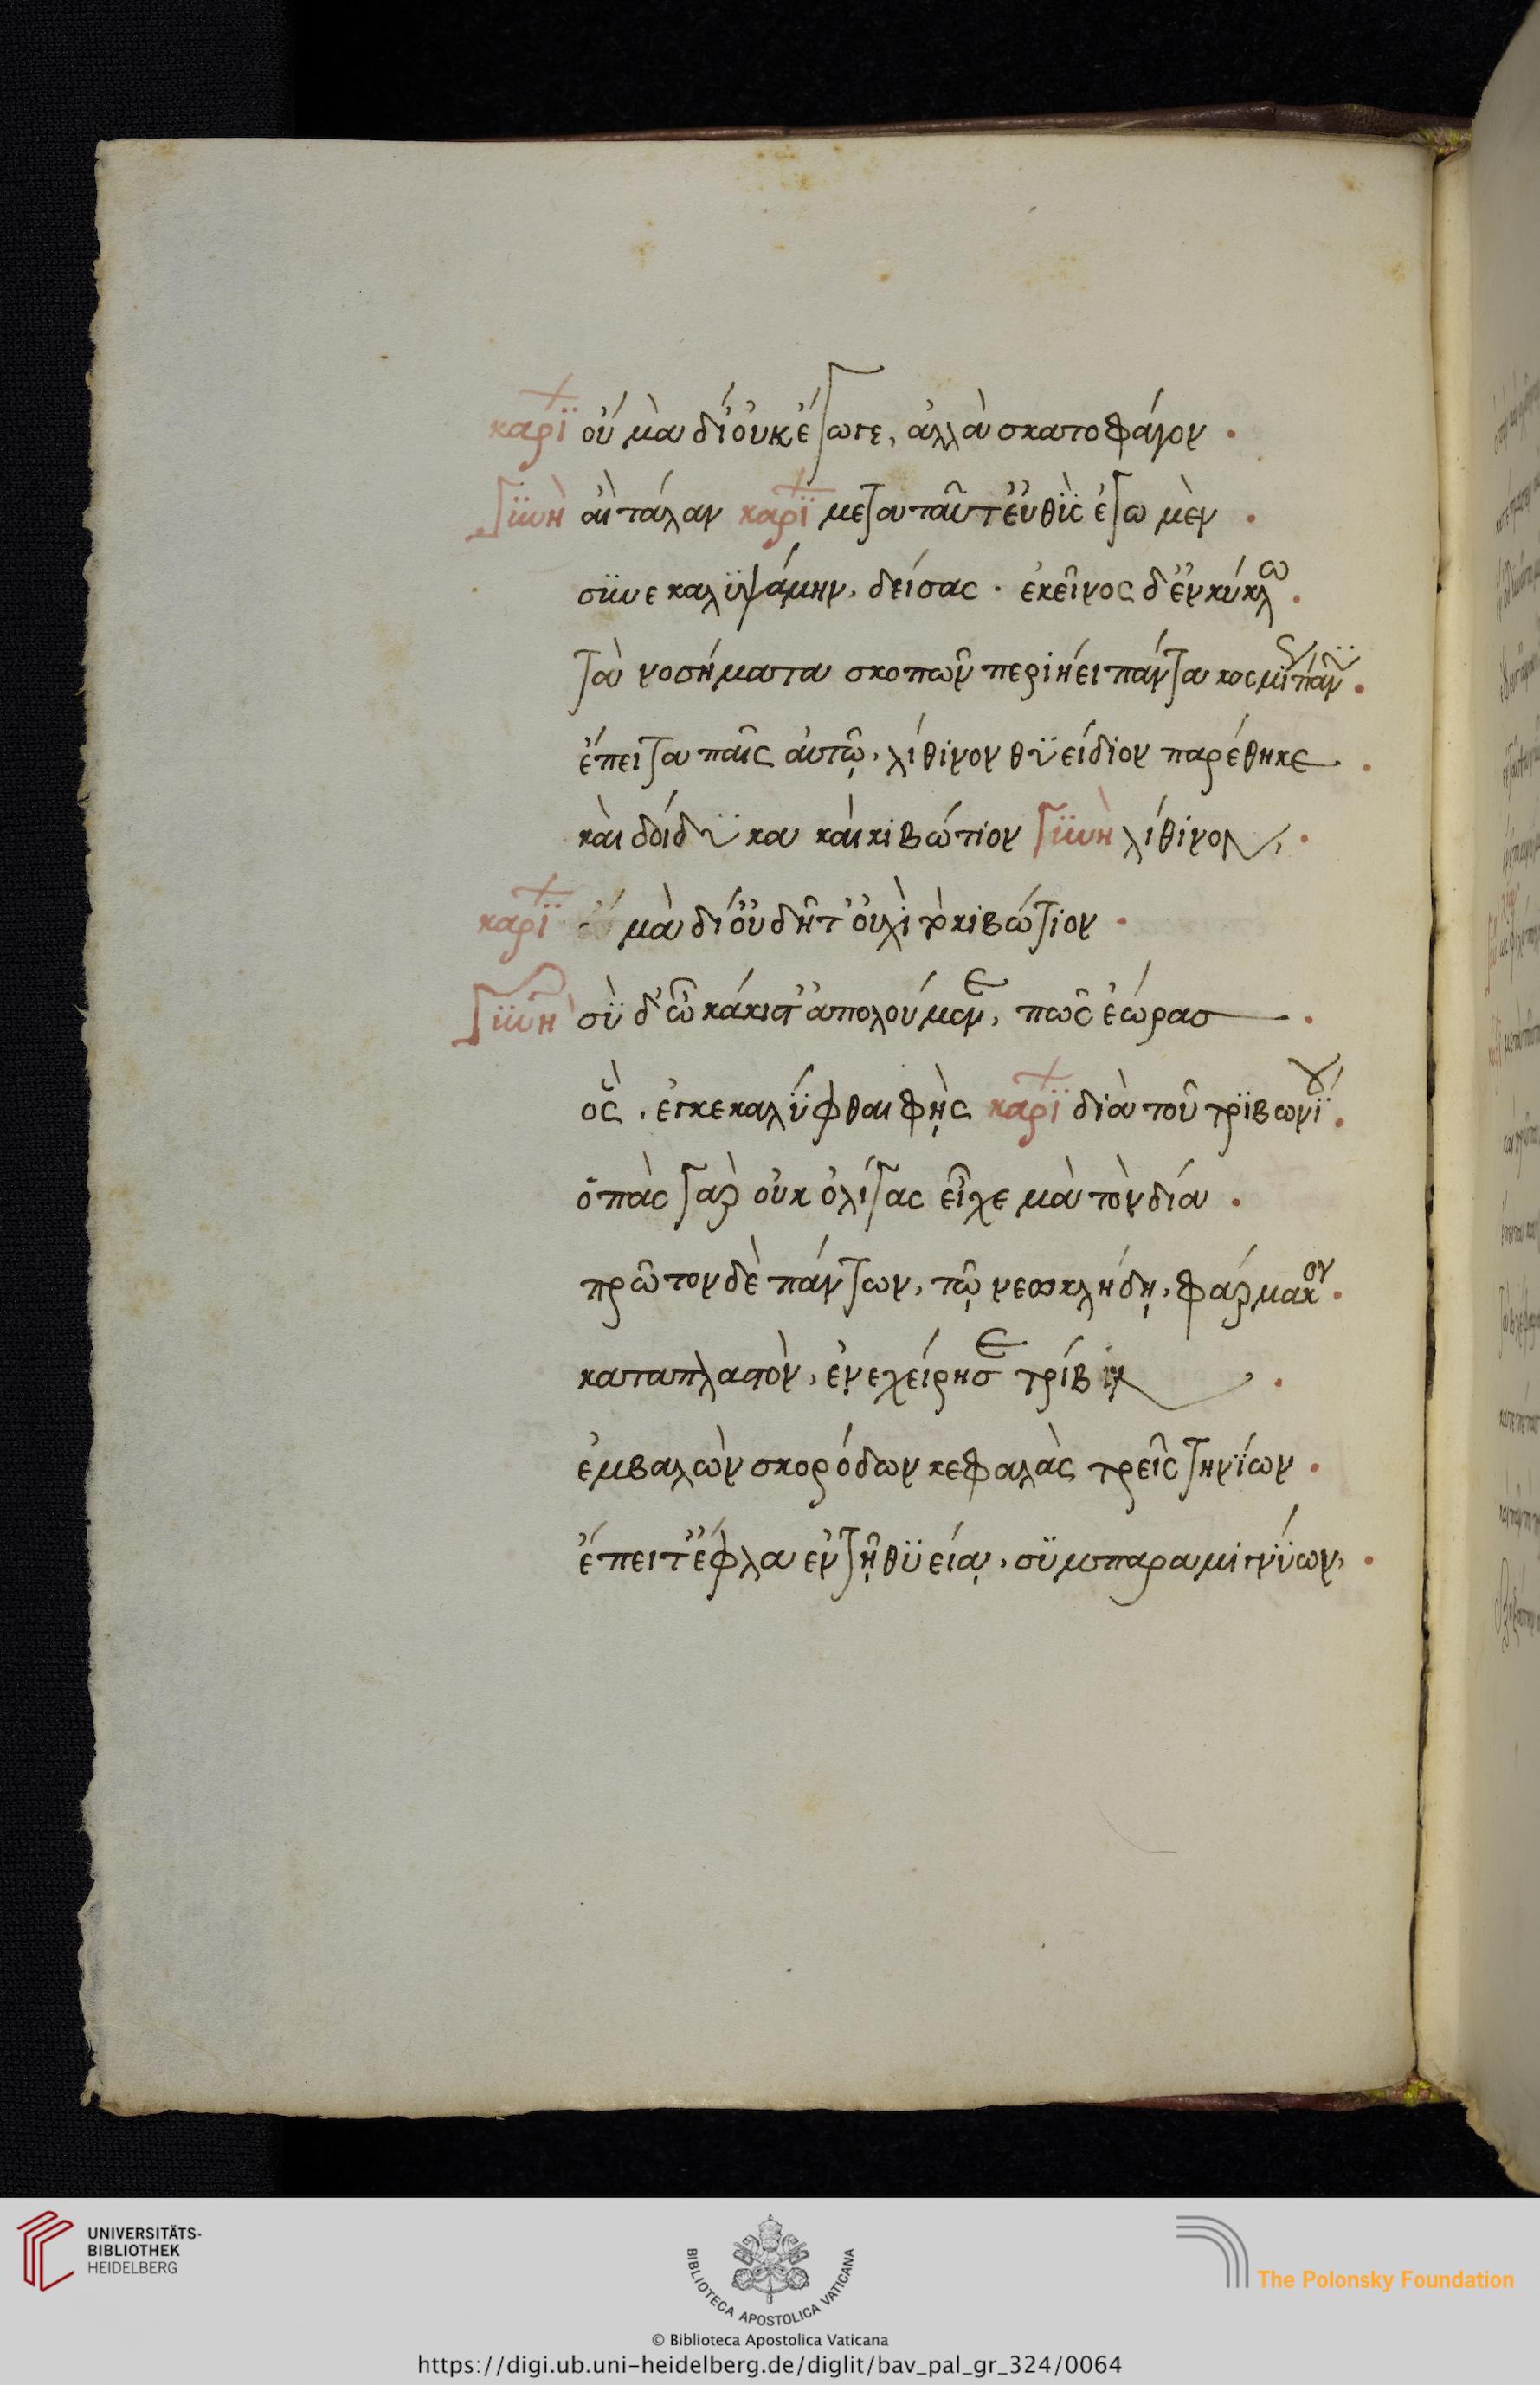 καρϊ οὐ μὰ δί' οὐκ ἔγωγε, ἀλλὰ σκατοφάγον .
γϋνὴ αἲ τάλαν καρϊ μετὰ ταῦτ' εὐθὺς ἐγὼ μὲν .
συνεκαλυψάμην, δείσας . ἐκεῖνος δ' ἐν κύκλω .
τὰ νοσήματα σκοπῶν περιήει πάντα κοσμίως πάνυ .
ἔπειτα παῖς αὐτῷ, λίθινον θϋείδιον παρέθηκε .
καὶ δοίδϋκα καὶ κιβώτιον γϋνὴ λίθινον, .
καρϊ οὐ μὰ δί' οὐ δῆτ' οὐχὶ τὸ κιβώτιον .
γϋνὴ σὺ δ' ὦ κάκιστ' ἀπολούμενε, πῶς ἑώρασ .
ὃς, ἐγκεκαλύφθαι φῂς καρϊ διὰ τοῦ τρϊβωνίου .
ὀπὰς γὰρ οὐκ ὀλίγας εἶχε μὰ τὸν δία .
πρῶτον δὲ πάντων, τῷ νεοκλήδῃ, φάρμακον .
καταπλαστὸν, ἐνεχείρησε τρίβειν .
ἐμβαλὼν σκορόδων κεφαλὰς τρεῖς τηνίων .
ἔπειτ' ἔφλα ἐν τῇ θϋείᾳ, σϋμπαραμιγνύων, .
UNIVERSITÄTS-
BIBLIOTHEK
HEIDELBERG
BIBLIOTECA APOSTOLICA VATICANA
The Polonsky Foundation
© Biblioteca Apostolica Vaticana
https://digi.ub.uni-heidelberg.de/diglit/bav_pal_gr_324/0064